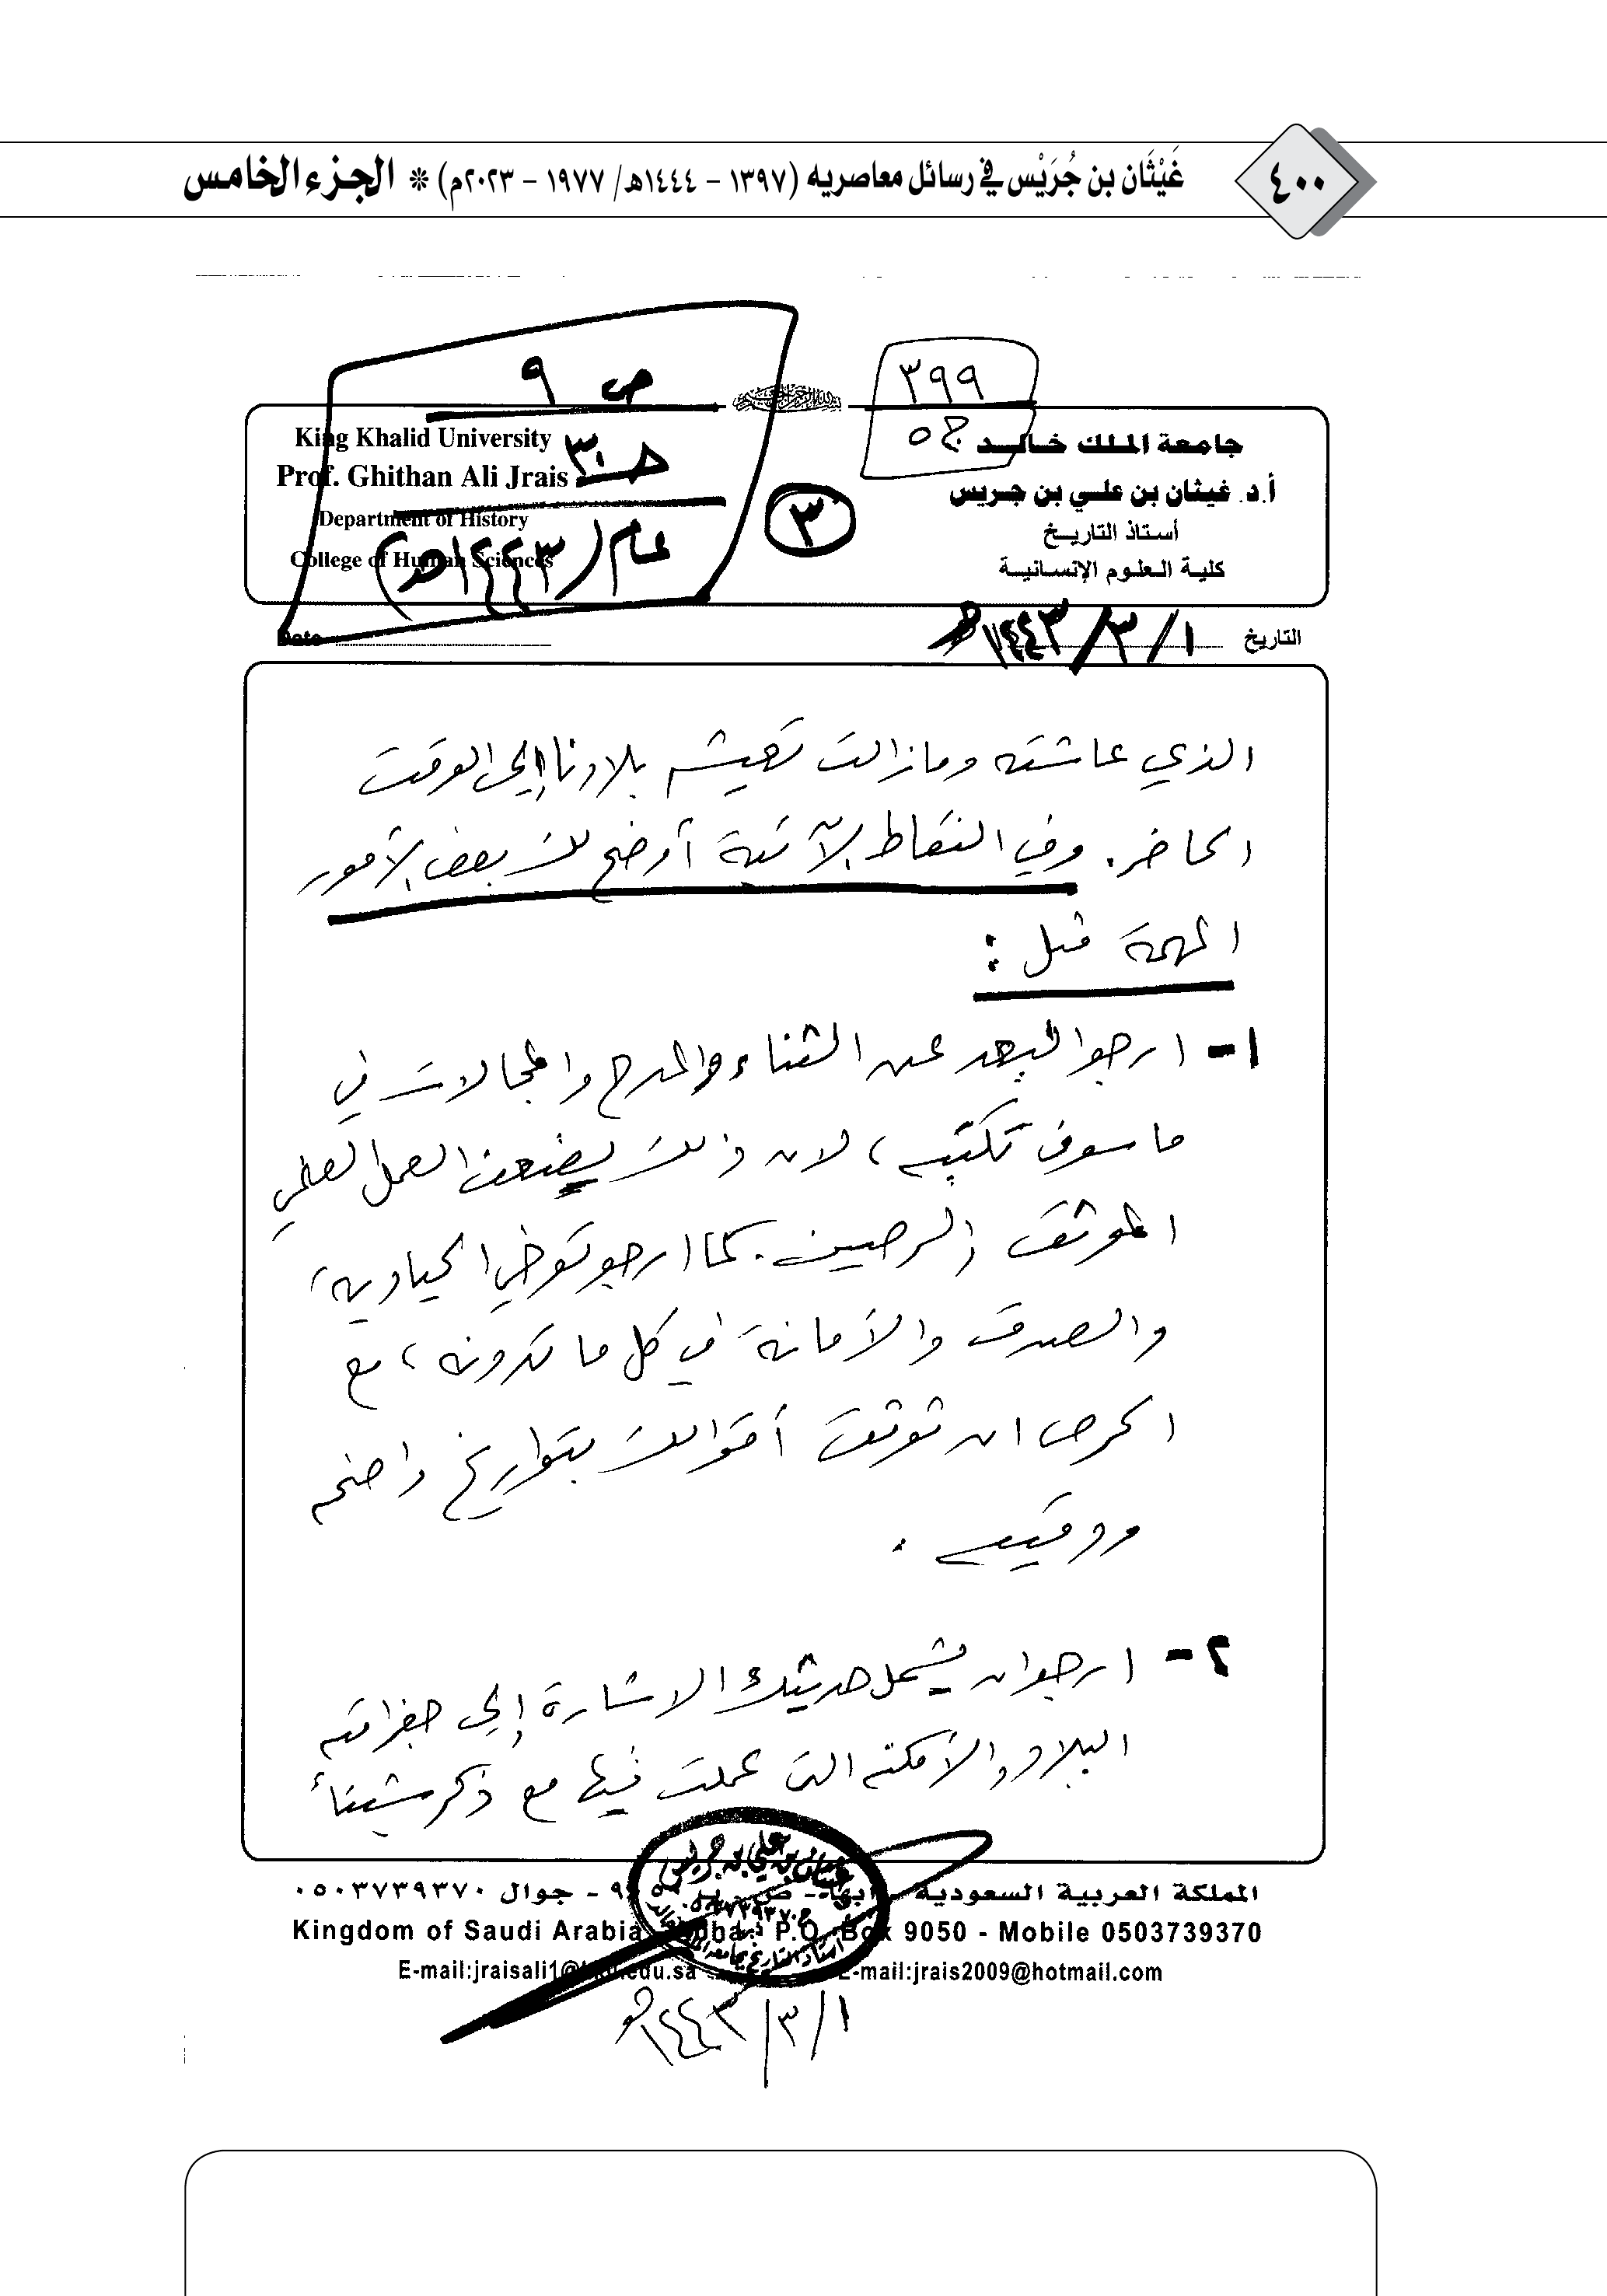 ٤٠٠
غَيْثَان بن جُرَيْس في رسائل معاصريه (١٣٩٧ – ١٤٤٤هـ/ ١٩٧٧ – ٢٠٢٣م) * الجزء الخامس
٣٩٩
ج٥
ص ٩
حـ ٣٠
عام (١٤٤٣هـ)
جامعة الملك خالد
أ.د. غيثان بن علي بن جريس
أستاذ التاريخ
كلية العلوم الإنسانية
٣
King Khalid University
Prof. Ghithan Ali Jrais
Department of History
College of Human Sciences
التاريخ ١/٣/١٤٤٣هـ
Date
الذي عاشته ومازالت تعيشه بلادنا إلى الوقت
الحاضر. وفي النقاط الآتية أوضح لك بعض الأمور
المهمة مثل :
١- ارجو البعد عن الثناء والمدح والمجالات في
ما سوف تكتبه، لان ذلك يضعف العمل العلمي
الموثق والرصين. كما ارجو توخي الحيادية،
والصدق والأمانة في كل ما تدونه، مع
الحرص ان توثق أقوالك بتواريخ واضحه
ودقيقه .
٢- ارجو ان يشمل حديثك الاشارة إلى جغرافيه
البلاد والأمكنه التي عملت فيها مع ذكر شيئاً
المملكة العربية السعودية - أبها - ص . ب ٩٠٥٠ - جوال ٠٥٠٣٧٣٩٣٧٠
Kingdom of Saudi Arabia - Abha - P.O. Box 9050 - Mobile 0503739370
E-mail:jraisali1@kku.edu.sa E-mail:jrais2009@hotmail.com
غيثان بن علي بن جريس
١/٣/١٤٤٣هـ